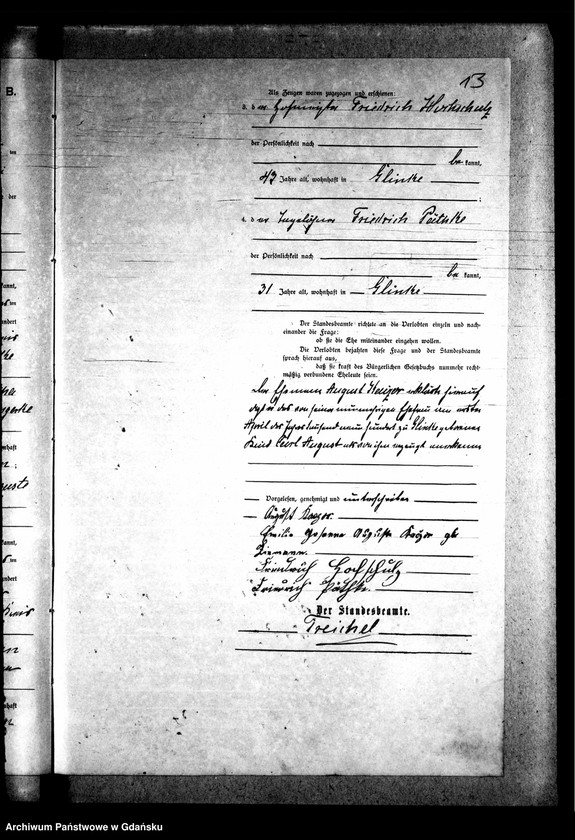 13
B.
Als Zeugen waren zugezogen und erschienen:
3. der Hofmeister Friedrich
der Persönlichkeit nach
be kannt,
43 Jahre alt, wohnhaft in Glinke
;
4. der Tagelöhner Friedrich Päthke
der Persönlichkeit nach
be kannt,
31 Jahre alt, wohnhaft in Glinke
Der Standesbeamte richtete an die Verlobten einzeln und nach-
einander die Frage:
ob sie die Ehe miteinander eingehen wollen.
Die Verlobten bejahten diese Frage und der Standesbeamte
sprach hierauf aus,
daß sie kraft des Bürgerlichen Gesetzbuchs nunmehr recht-
mäßig verbundene Eheleute seien.
Der Ehemann August erklärte hierauf
daß er das von seiner nunmehrigen Ehefrau am
April des Jahres tausend neun hundert zu Glinke geborene
Kind Carl August als von ihm erzeugt anerkenne
Vorgelesen, genehmigt und unterschrieben
August
Emilie Auguste geb
Friedrich
Friedrich Päthke.
Der Standesbeamte.
Treichel
Archiwum Państwowe w Gdańsku